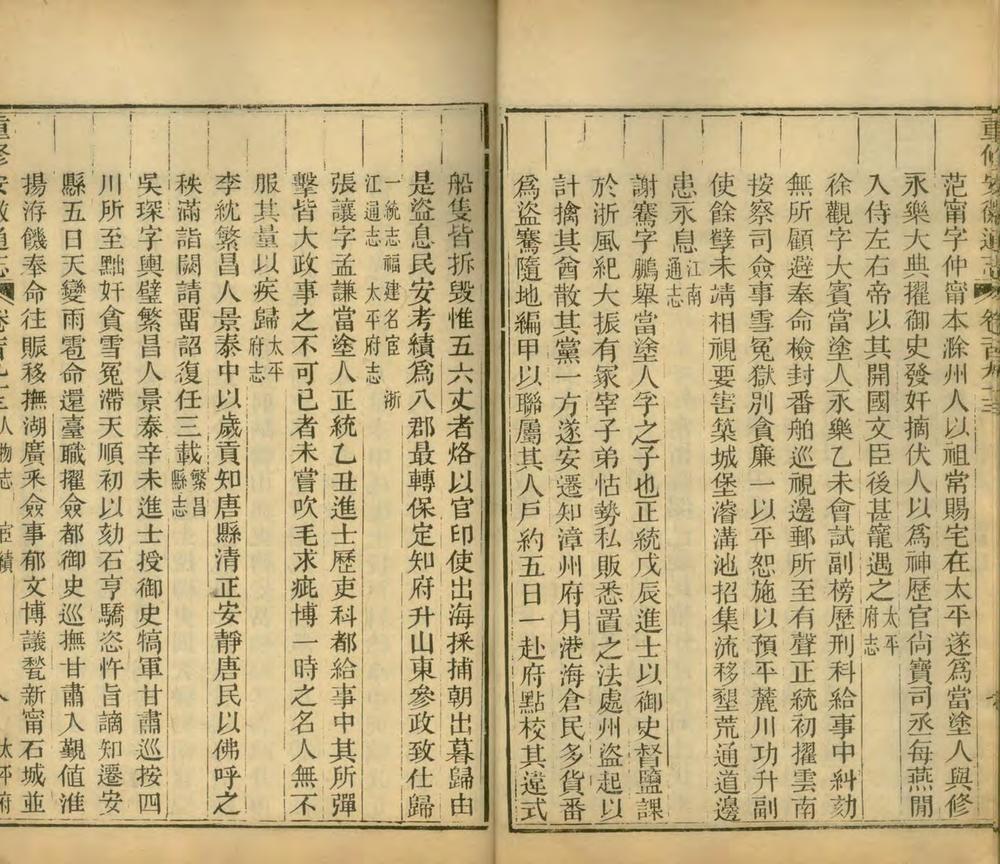 范甯字仲甯本滁州人以祖常賜宅在太平遂爲當塗人與修
永樂大典擢御史發奸摘伏人以爲神歷官尚寶司丞每燕閒
入侍左右帝以其開國文臣後甚寵遇之太平府志
徐觀字大賓當塗人永樂乙未會試副榜歷刑科給事中糾劾
無所顧避奉命檢封番舶巡視邊郵所至有聲正統初擢雲南
按察司僉事雪冤獄別貪廉一以平恕施以預平麓川功升副
使餘孽未靖相視要害築城堡濬溝池招集流移墾荒通道邊
患永息江南通志
謝騫字鵬舉當塗人孚之子也正統戊辰進士以御史督鹽課
於浙風紀大振有冢宰子弟怙勢私販悉置之法處州盜起以
計擒其酋散其黨一方遂安遷知漳州府月港海倉民多貨番
爲盜騫隨地編甲以聯屬其人戸約五日一赴府點校其違式
船隻皆拆毀惟五六丈者烙以官印使出海採捕朝出暮歸由
是盜息民安考績爲八郡最轉保定知府升山東參政致仕歸
一統志 福建名宦 浙江通志 太平府志
張讓字孟謙當塗人正統乙丑進士歷吏科都給事中其所彈
擊皆大政事之不可已者未嘗吹毛求疵博一時之名人無不
服其量以疾歸太平府志
李紞繁昌人景泰中以歲貢知唐縣清正安靜唐民以佛呼之
秩滿詣闕請畱詔復任三載繁昌縣志
吳琛字輿璧繁昌人景泰辛未進士授御史犒軍甘肅巡按四
川所至黜奸貪雪冤滯天順初以劾石亨驕恣忤旨謫知遷安
縣五日天變雨雹命還臺職擢僉都御史巡撫甘肅入覲値淮
揚洊饑奉命往賑移撫湖廣釆僉事郁文博議甃新甯石城並